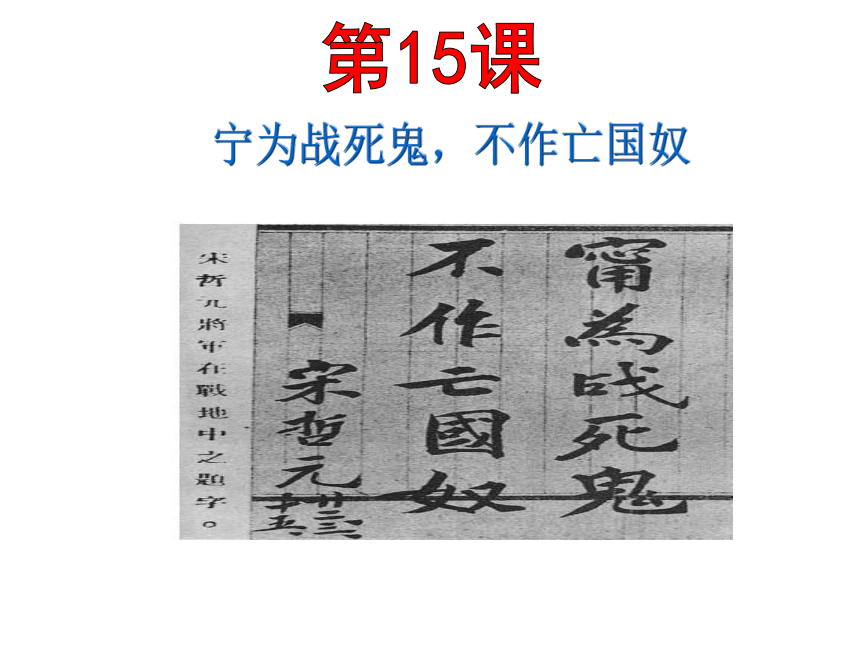 第15课
宁为战死鬼，不作亡国奴
甯為战死鬼
不作亡國奴
宋哲元
廿二、三、十五、
宋哲元將軍在戰地中之題字。